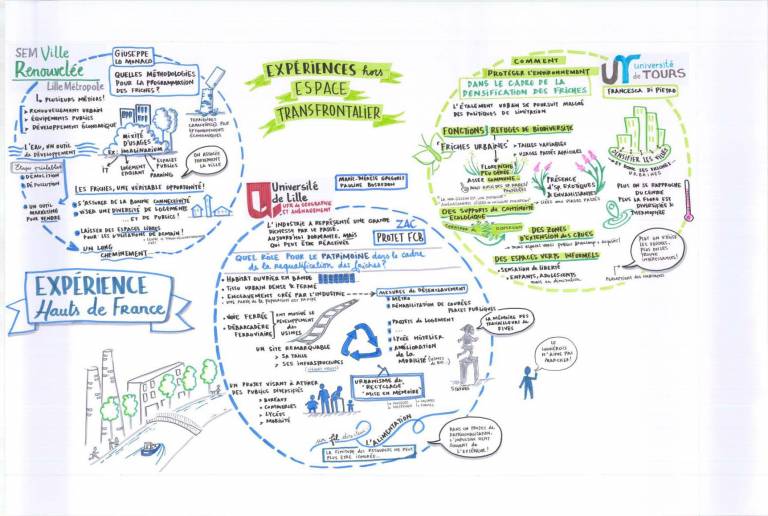 SEM Ville
Renouvelée
Lille Métropole
GIUSEPPE
LO MONACO
QUELLES MÉTHODOLOGIES
POUR LA PROGRAMMATION
DES FRICHES?
↳ PLUSIEURS MÉTIERS!
RENOUVELLEMENT URBAIN
ÉQUIPEMENTS PUBLICS
DÉVELOPPEMENT ÉCONOMIQUE
L'EAU, UN OUTIL
DE DÉVELOPPEMENT
MIXITÉ
D'USAGES
EX: IMAGINARIUM
IT
LOGEMENT
ÉTUDIANT
ESPACES
PUBLICS
PARKING
ON ASSOCIE
LA VILLE
DÉMOLITION
DÉPOLLUTION
UN OUTIL
MARKETING
POUR VENDRE
LES FRICHES, UNE VÉRITABLE OPPORTUNITÉ!
S'ASSURER DE LA BONNE CONNEXITÉ
VISER UNE DIVERSITÉ DE LOGEMENTS
... ET DE PUBLICS!
LAISSER DES ESPACES LIBRES
POUR LES UTILISATIONS DE DEMAIN!
UN LONG
CHEMINEMENT
EXPÉRIENCES hors
ESPACE
TRANSFRONTALIER
COMMENT
PROTÉGER L'ENVIRONNEMENT
DANS LE CADRE DE LA
DENSIFICATION DES FRICHES?
université
de TOURS
FRANCESCA DI PIETRO
L'ÉTALEMENT URBAIN SE POURSUIT MALGRÉ
DES POLITIQUES DE LIMITATION
FONCTIONS
REFUGES DE BIODIVERSITÉ
"FRICHES URBAINES"
TAILLES VARIABLES
USAGES PASSÉS AGRICOLES
DENSIFIER LES VILLES
FLORE TRÈS
PEU DÉDIÉE
ASSEZ COMMUNE
PRÉSENCE
D'SP. EXOTIQUES
ENVAHISSANTES
DES SUPPORTS DE CONTINUITÉ
ÉCOLOGIQUE
PLUS ON SE RAPPROCHE
DU CENTRE
PLUS LA FLORE EST
DIVERSIFIÉE &
THERMOPHILE
DES ZONES
D'EXTENSION DES CRUES
DES ESPACES VERTS INFORMELS
SENSATION DE LIBERTÉ
ENFANTS, ADOLESCENTS
Université
de Lille
UFR DE GÉOGRAPHIE
ET AMÉNAGEMENT
PAULINE BOSREDON
L'INDUSTRIE A REPRÉSENTÉ UNE GRANDE
RICHESSE PAR LE PASSÉ.
AUJOURD'HUI DORMANTE, MAIS
QUI PEUT ÊTRE RÉACTIVÉE
ZAC
PROJET FCB
QUEL RÔLE POUR LE PATRIMOINE dans le cadre
de la requalification des friches?
HABITAT OUVRIER EN BANDE
TISSU URBAIN DENSE & FERMÉ
ENCLAVEMENT CRÉÉ PAR L'INDUSTRIE
MESURES DE DÉSENCLAVEMENT
MÉTRO
RÉHABILITATION DE COURÉES
PLACES PUBLIQUES
PROJETS DE LOGEMENT
...
LYCÉE HÔTELIER
AMÉLIORATION
DE LA
MOBILITÉ
VOIE FERRÉE
DÉBARCADÈRE
FERROVIAIRE
ONT MOTIVÉ LE
DÉVELOPPEMENT
DES
USINES
UN SITE REMARQUABLE
SA TAILLE
SES INFRASTRUCTURES
LA MÉMOIRE DES
TRAVAILLEURS DE
FIVES
UN PROJET VISANT À ATTIRER
DES PUBLICS DIVERSIFIÉS
BUREAUX
COMMERCES
LYCÉES
MOBILITÉ
URBANISME DU
"RECYCLAGE"
"MISE EN MÉMOIRE"
un fil directeur
L'ALIMENTATION
LA FINITUDE DES RESSOURCES NE PEUT
PLUS ÊTRE IGNORÉE...
DANS UN PROJET DE
L'IMPULSION VIENT
SOUVENT DE
L'EXTÉRIEUR!
LE
LILLOIS
N'AIME PAS
MARCHER!
EXPÉRIENCE
Hauts de France